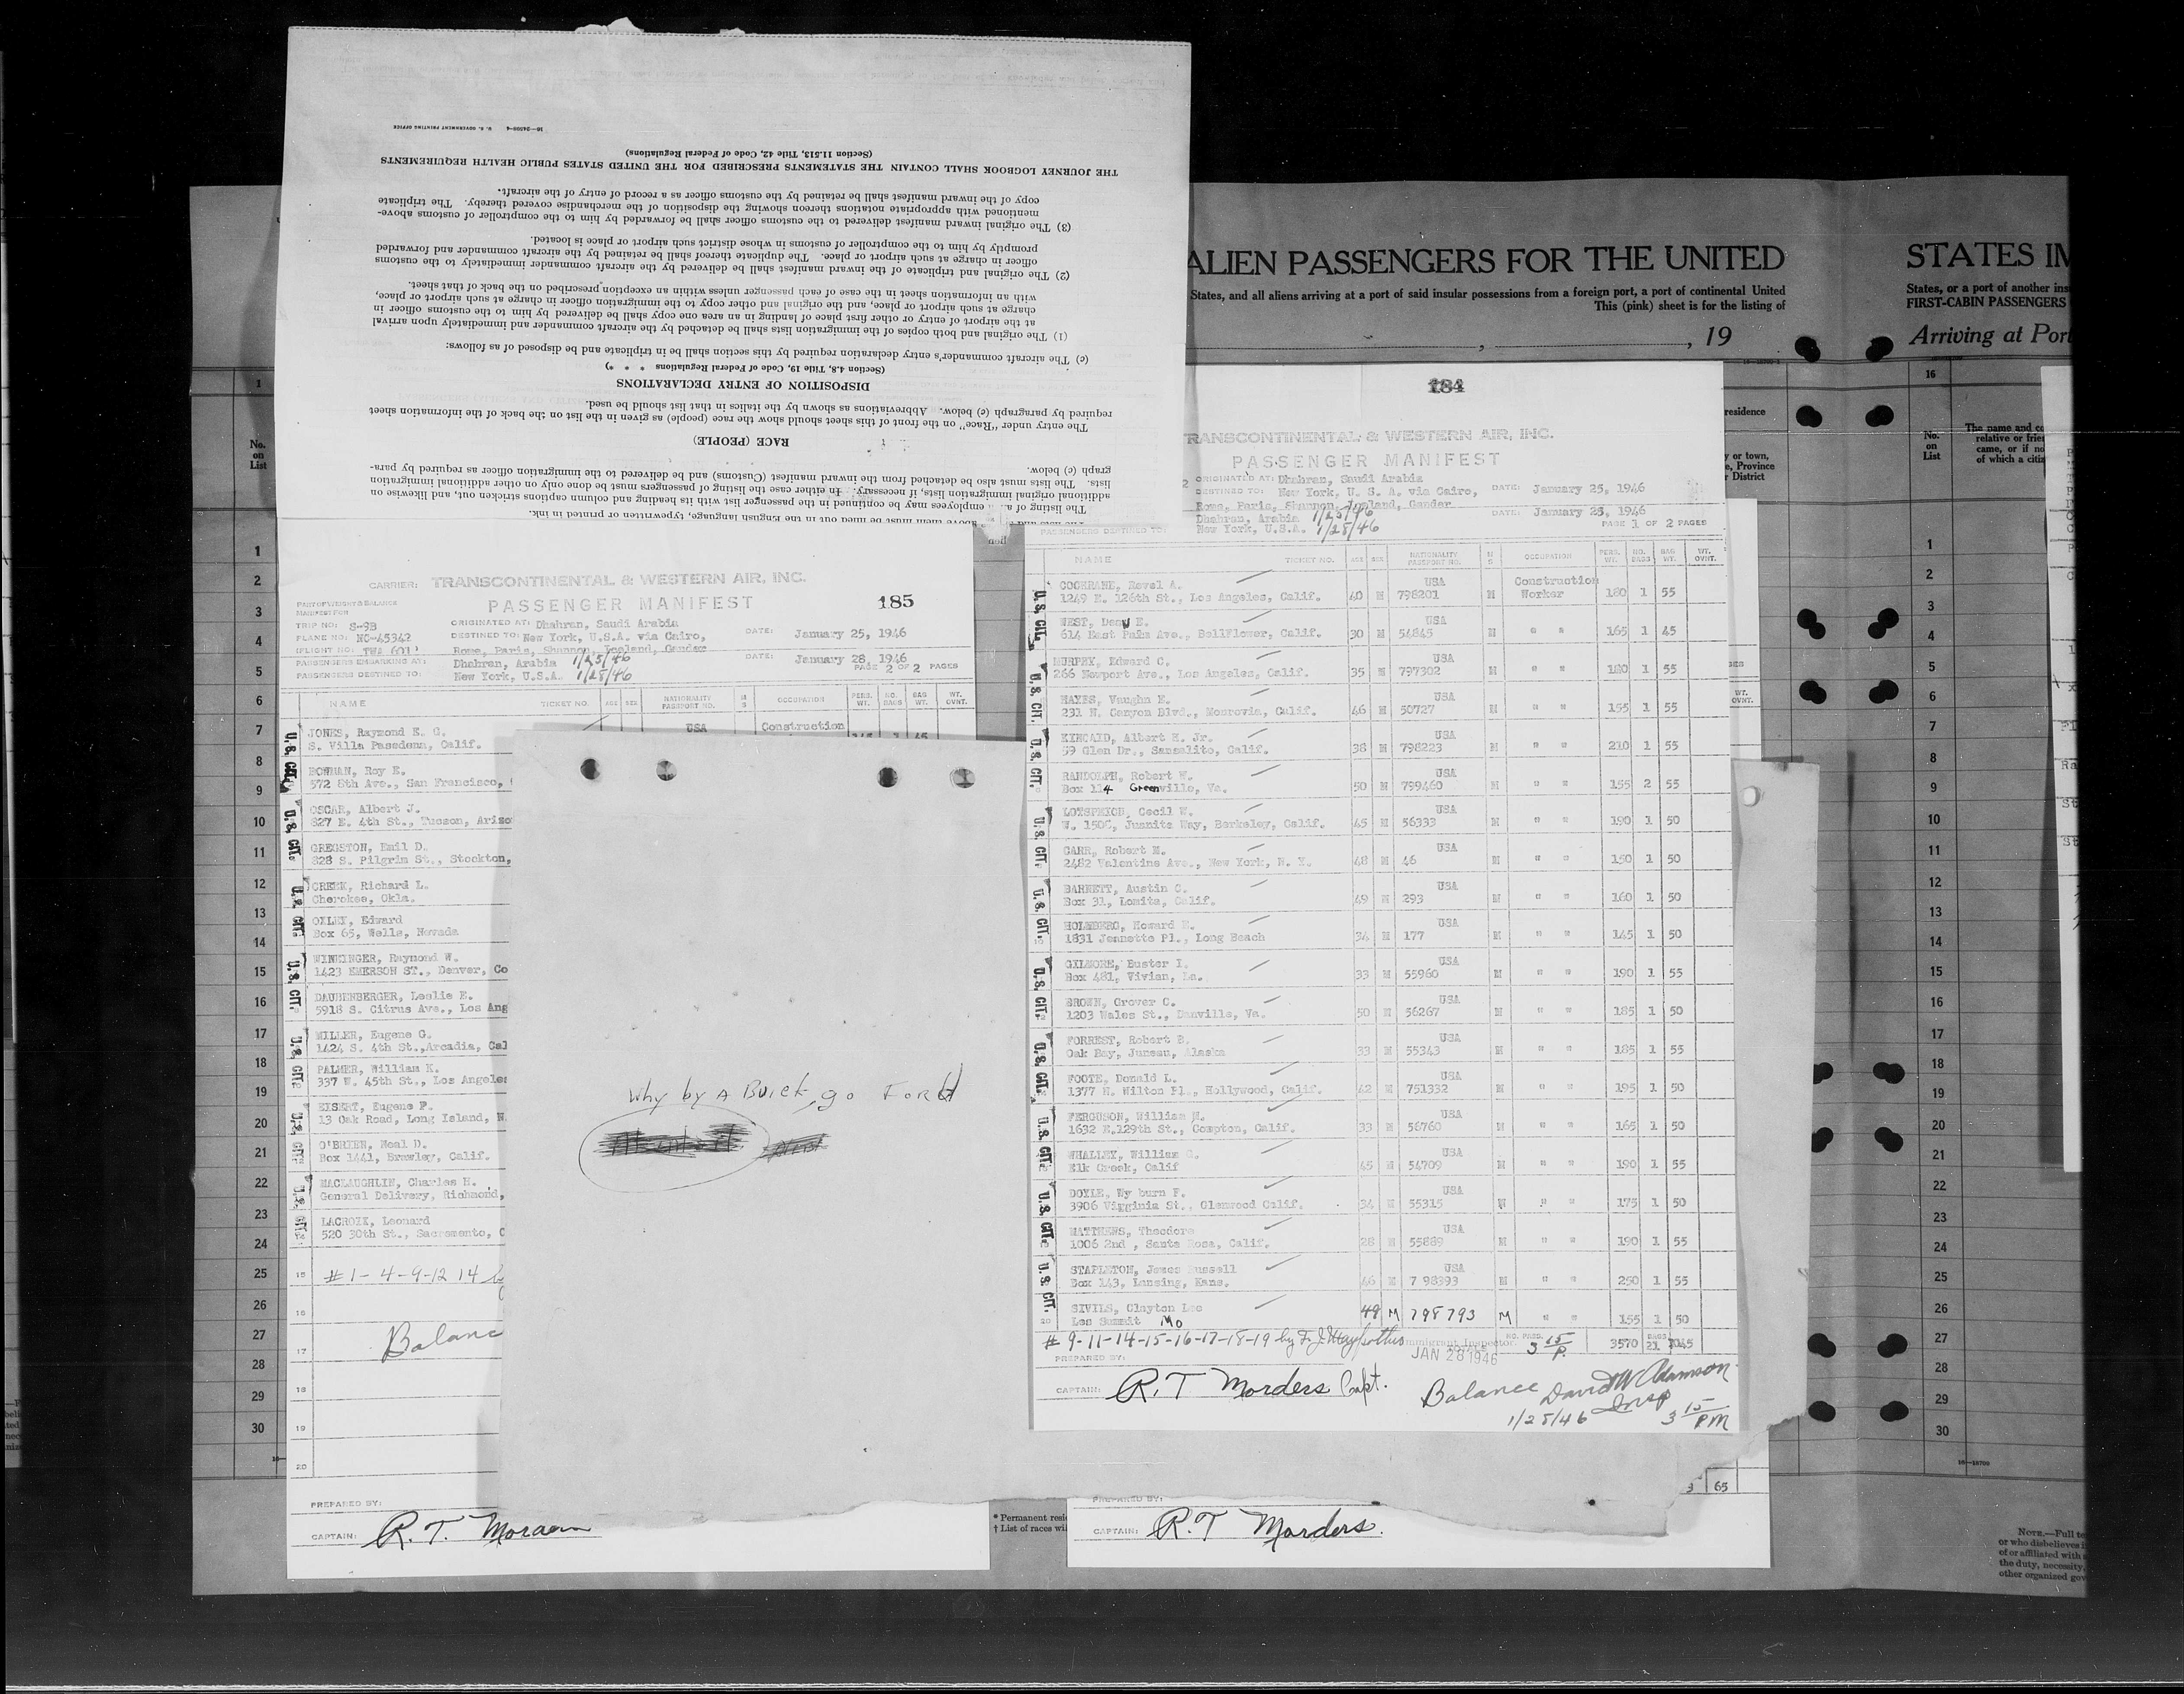 16—24508-4 U. S. GOVERNMENT PRINTING OFFICE
(Section 11.513, Title 42, Code of Federal Regulations)
THE JOURNEY LOGBOOK SHALL CONTAIN THE STATEMENTS PRESCRIBED FOR THE UNITED STATES PUBLIC HEALTH REQUIREMENTS
copy of the inward manifest shall be retained by the customs officer as a record of entry of the aircraft.
mentioned with appropriate notations thereon showing the disposition of the merchandise covered thereby. The triplicate
(3) The original inward manifest delivered to the customs officer shall be forwarded by him to the comptroller of customs above-
promptly by him to the comptroller of customs in whose district such airport or place is located.
officer in charge at such airport or place. The duplicate thereof shall be retained by the aircraft commander and forwarded
(2) The original and triplicate of the inward manifest shall be delivered by the aircraft commander immediately to the customs
with an information sheet in the case of each passenger unless within an exception prescribed on the back of that sheet.
charge at such airport or place, and the original and other copy to the immigration officer in charge at such airport or place,
at the airport of entry or other first place of landing in an area one copy shall be delivered by him to the customs officer in
(1) The original and both copies of the immigration lists shall be detached by the aircraft commander and immediately upon arrival
(c) The aircraft commander's entry declaration required by this section shall be in triplicate and be disposed of as follows:
(Section 4.8, Title 19, Code of Federal Regulations * * *)
DISPOSITION OF ENTRY DECLARATIONS
required by paragraph (c) below. Abbreviations as shown by the italics in that list should be used.
The entry under "Race" on the front of this sheet should show the race (people) as given in the list on the back of the information sheet
RACE (PEOPLE)
graph (c) below.
lists. The lists must also be detached from the inward manifest (Customs) and be delivered to the immigration officer as required by para-
additional original immigration lists, if necessary. In either case the listing of passengers must be done only on other additional immigration
The listing of a employees may be continued in the passenger list with its heading and column captions stricken out, and likewise on
above them must be filled out in the English language, typewritten or printed in ink.
ALIEN PASSENGERS FOR THE UNITED
States, and all aliens arriving at a port of said insular possessions from a foreign port, a port of continental United
This (pink) sheet is for the listing of
, 19
STATES IM
States, or a port of another ins
FIRST-CABIN PASSENGERS
Arriving at Port
No. on List
1
2
3
4
5
6
7
8
9
10
11
12
13
14
15
16
17
18
19
20
21
22
23
24
25
26
27
28
29
30
CARRIER: TRANSCONTINENTAL & WESTERN AIR, INC.
PASSENGER MANIFEST 185
PART OF WEIGHT & BALANCE
MANIFEST FOR
TRIP NO: S-9B ORIGINATED AT: Dhahran, Saudi Arabia
PLANE NO: NC-45342 DESTINED TO: New York, U.S.A. via Cairo, DATE: January 25, 1946
(FLIGHT NO: TWA 601) Rome, Paris, Shannon, Ireland, Gander
PASSENGERS EMBARKING AT: Dhahran, Arabia 1/25/46 DATE: January 28, 1946
PASSENGERS DESTINED TO: New York, U.S.A. 1/28/46 PAGE 2 OF 2 PAGES
NAME TICKET NO. AGE SEX NATIONALITY PASSPORT NO. M S OCCUPATION PERS. WT. NO. BAGS BAG WT. WT. OVNT.
U.S. CIT.
JONES, Raymond E. G. USA Construction
S. Villa Pasedena, Calif.
BOWMAN, Roy E.
572 8th Ave., San Francisco,
OSCAR, Albert J.
827 E. 4th St., Tucson, Arizo
GREGSTON, Emil D.
828 S. Pilgrim St., Stockton,
CREEK, Richard L.
Cherokee, Okla.
OXLEY, Edward
Box 65, Wells, Nevada
WININGER, Raymond W.
1423 EMERSON ST., Denver, Co
DAUBENBERGER, Leslie E.
5918 S. Citrus Ave., Los Ang
MILLER, Eugene G.
1424 S. 4th St.,Arcadia, Cal
PALMER, William K.
337 W. 45th St., Los Angeles
EISERT, Eugene P.
13 Oak Road, Long Island, N.
O'BRIEN, Neal D.
Box 1441, Brawley, Calif.
MACLAUGHLIN, Charles H.
General Delivery, Richmond,
LACROIX, Leonard
520 30th St., Sacramento, C
15 #1-4-9-12 14 by
16
17 Balanc
18
19
20
PREPARED BY:
CAPTAIN: R. T. Morders
Why by A Buick, go Ford
184
TRANSCONTINENTAL & WESTERN AIR, INC.
PASSENGER MANIFEST
ORIGINATED AT: Dhahran, Saudi Arabia
DESTINED TO: New York, U. S. A. via Cairo, DATE: January 25, 1946
Rome, Paris, Shannon, Ireland, Gander
Dhahran, Arabia 1/25/46 DATE: January 28, 1946
PASSENGERS DESTINED TO: New York, U.S.A. 1/28/46 PAGE 1 OF 2 PAGES
NAME TICKET NO. AGE SEX NATIONALITY PASSPORT NO. M S OCCUPATION PERS. WT. NO. BAGS BAG WT. WT. OVNT.
U.S. CIT.
COCHRANE, Revel A. USA Construction
1249 E. 126th St., Los Angeles, Calif. 40 M 798201 M Worker 180 1 55
WEST, Deny E. USA
614 East Palm Ave., Bellflower, Calif. 30 M 54845 M " " 165 1 45
MURPHY, Edward C. USA
266 Newport Ave., Los Angeles, Calif. 35 M 797302 M " " 180 1 55
HAYES, Vaughn E. USA
231 N. Canyon Blvd., Monrovia, Calif. 46 M 50727 M " " 155 1 55
KINCAID, Albert H. Jr. USA
59 Glen Dr., Sansalito, Calif. 38 M 798223 M " " 210 1 55
RANDOLPH, Robert W. USA
Box 114 Greenville, Va. 50 M 799460 M " " 155 2 55
LOTSPEICH, Cecil W. USA
W. 150C, Juanita Way, Berkeley, Calif. 45 M 56333 M " " 190 1 50
CARR, Robert M. USA
2482 Valentine Ave., New York, N. Y. 48 M 46 M " " 150 1 50
BARNETT, Austin O. USA
Box 31, Lomita, Calif. 49 M 293 M " " 160 1 50
HOLMBERG, Howard E. USA
1831 Jeanette Pl., Long Beach 34 M 177 M " " 145 1 50
GILMORE, Buster I. USA
Box 481, Vivian, La. 33 M 55960 M " " 190 1 55
BROWN, Grover C. USA
1203 Wales St., Danville, Va. 50 M 56267 M " " 185 1 50
FORREST, Robert B. USA
Oak Bay, Juneau, Alaska 33 M 55343 M " " 185 1 55
FOOTE, Donald L. USA
1377 N. Wilton Pl., Hollywood, Calif. 42 M 751332 M " " 195 1 50
FERGUSON, William M. USA
1632 E.129th St., Compton, Calif. 33 M 56760 M " " 165 1 50
WHALLEY, William G. USA
Elk Creek, Calif 45 M 54709 M " " 190 1 55
DOYLE, Wy burn F. USA
3906 Virginia St., Glenwood Calif. 34 M 55315 M " " 175 1 50
MATTHEWS, Theodore USA
1006 2nd , Santa Rosa, Calif. 28 M 55889 M " " 190 1 55
STAPLETON, James Russell USA
Box 143, Lansing, Kans. 46 M 7 98393 M " " 250 1 55
SIVILS, Clayton Lee
20 Les Summit Mo 49 M 798793 M " " 155 1 50
# 9-11-14-15-16-17-18-19 by Immigrant Inspector. NO. PASS. 3 15 P. 3570 BAGS 21 1045
JAN 28 1946
PREPARED BY:
CAPTAIN: R.T Morders Capt. Balance David W Adamson
Insp
1/28/46 3 15 PM
3 65
PREPARED BY:
CAPTAIN: R.T Morders.
* Permanent resi
† List of races wil
residence
y or town,
e, Province
r District
16
No. on List
The name and co
relative or frie
came, or if no
of which a citiz
1
2
3
4
5
6
7
8
9
10
11
12
13
14
15
16
17
18
19
20
21
22
23
24
25
26
27
28
29
30
16—18700
NOTE.—Full te
or who disbelieves i
of or affiliated with
the duty, necessity,
other organized gov